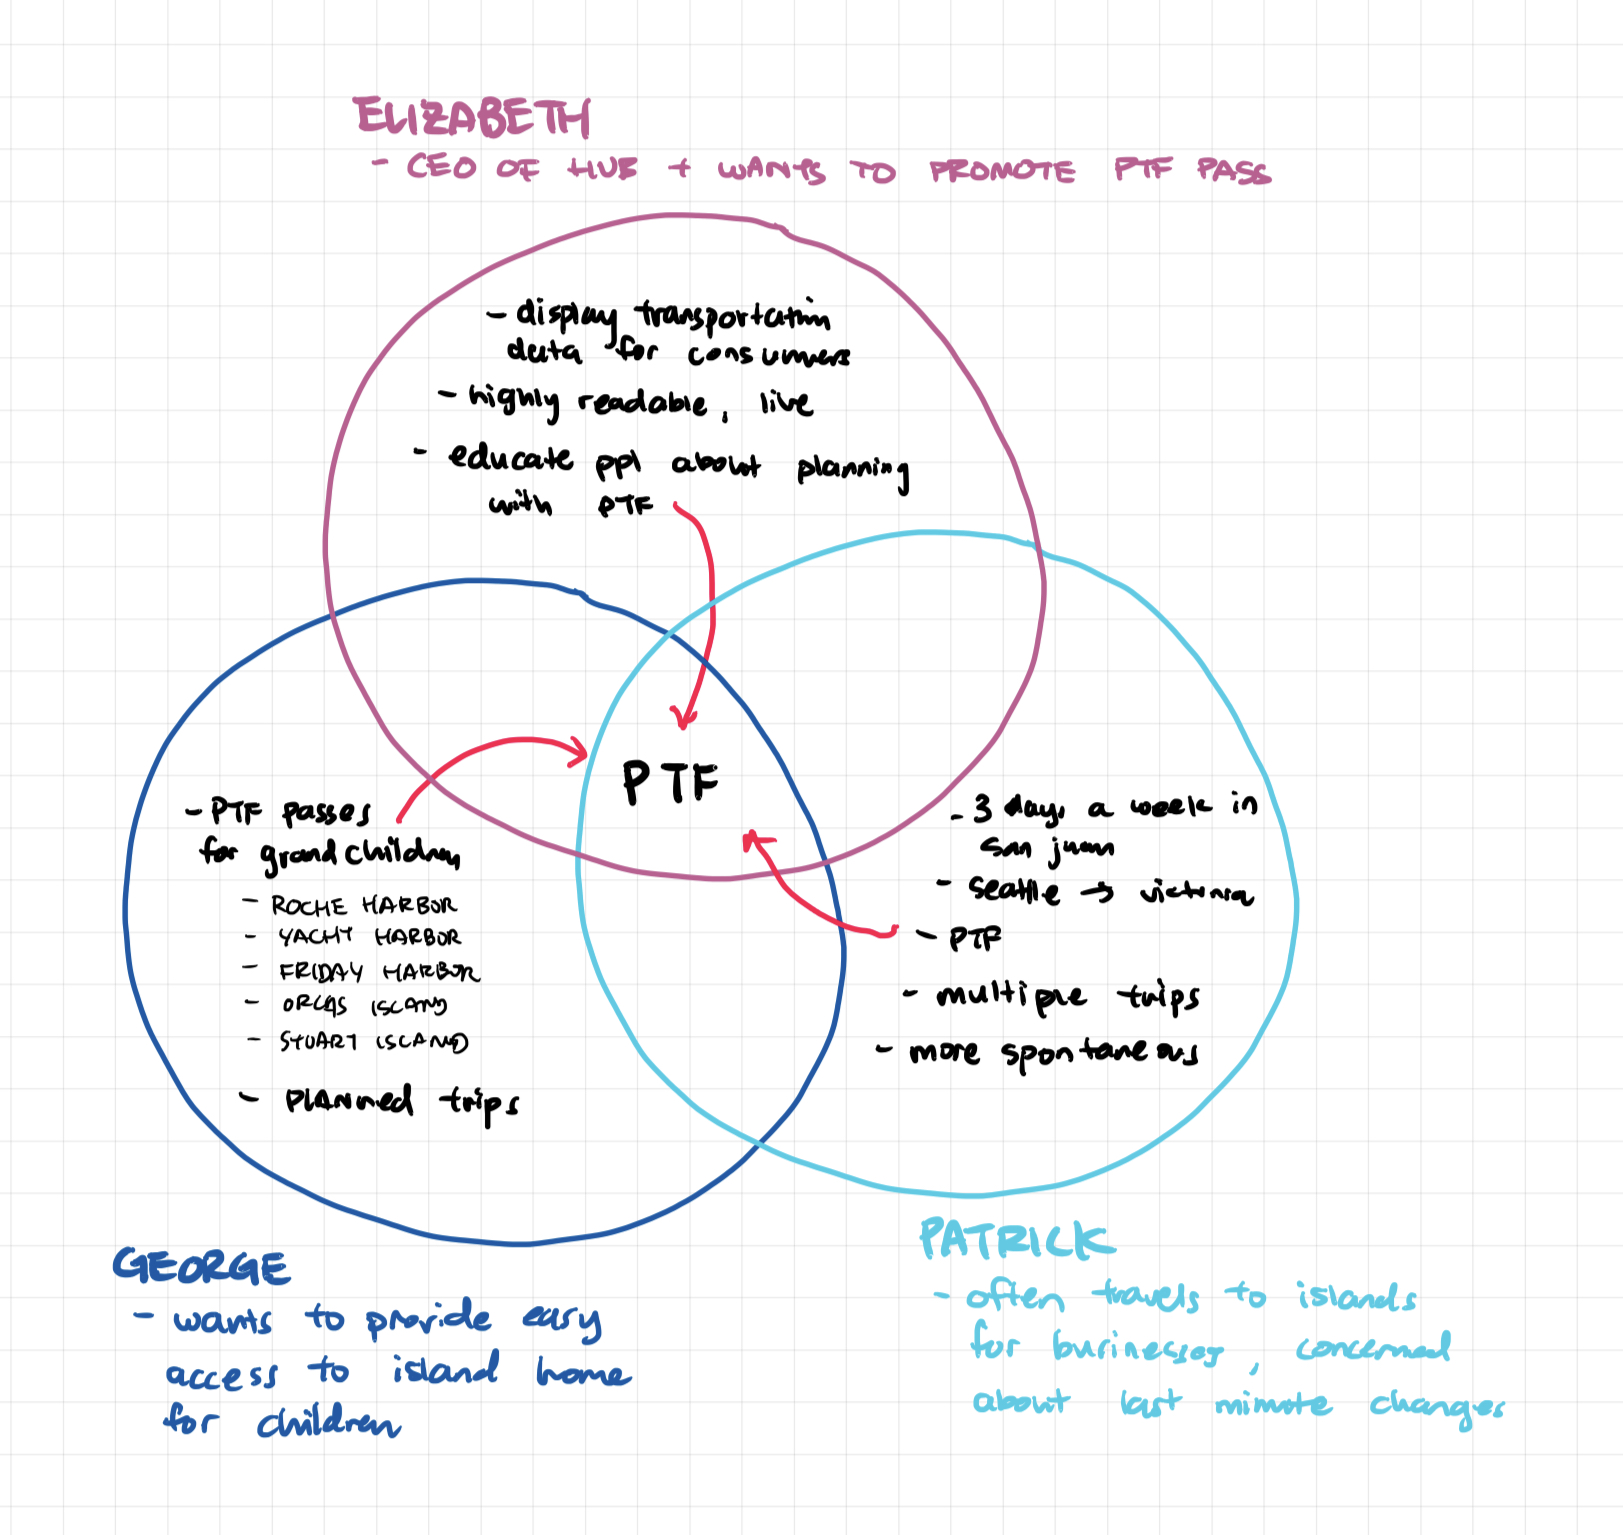 ELIZABETH
- CEO OF HUB + WANTS TO PROMOTE PTF PASS
- display transportation
data for consumers
- highly readable, live
- educate ppl about planning
with PTF
PTF
- PTF passes
for grandchildren
- ROCHE HARBOR
- YACHT HARBOR
- FRIDAY HARBOR
- ORCAS ISLAND
- STUART ISLAND
- PLANNED trips
- 3 days a week in
san juan
- seattle → victoria
- PTF
- multiple trips
- more spontaneous
GEORGE
- wants to provide easy
access to island home
for children
PATRICK
- often travels to islands
for businesses, concerned
about last minute changes